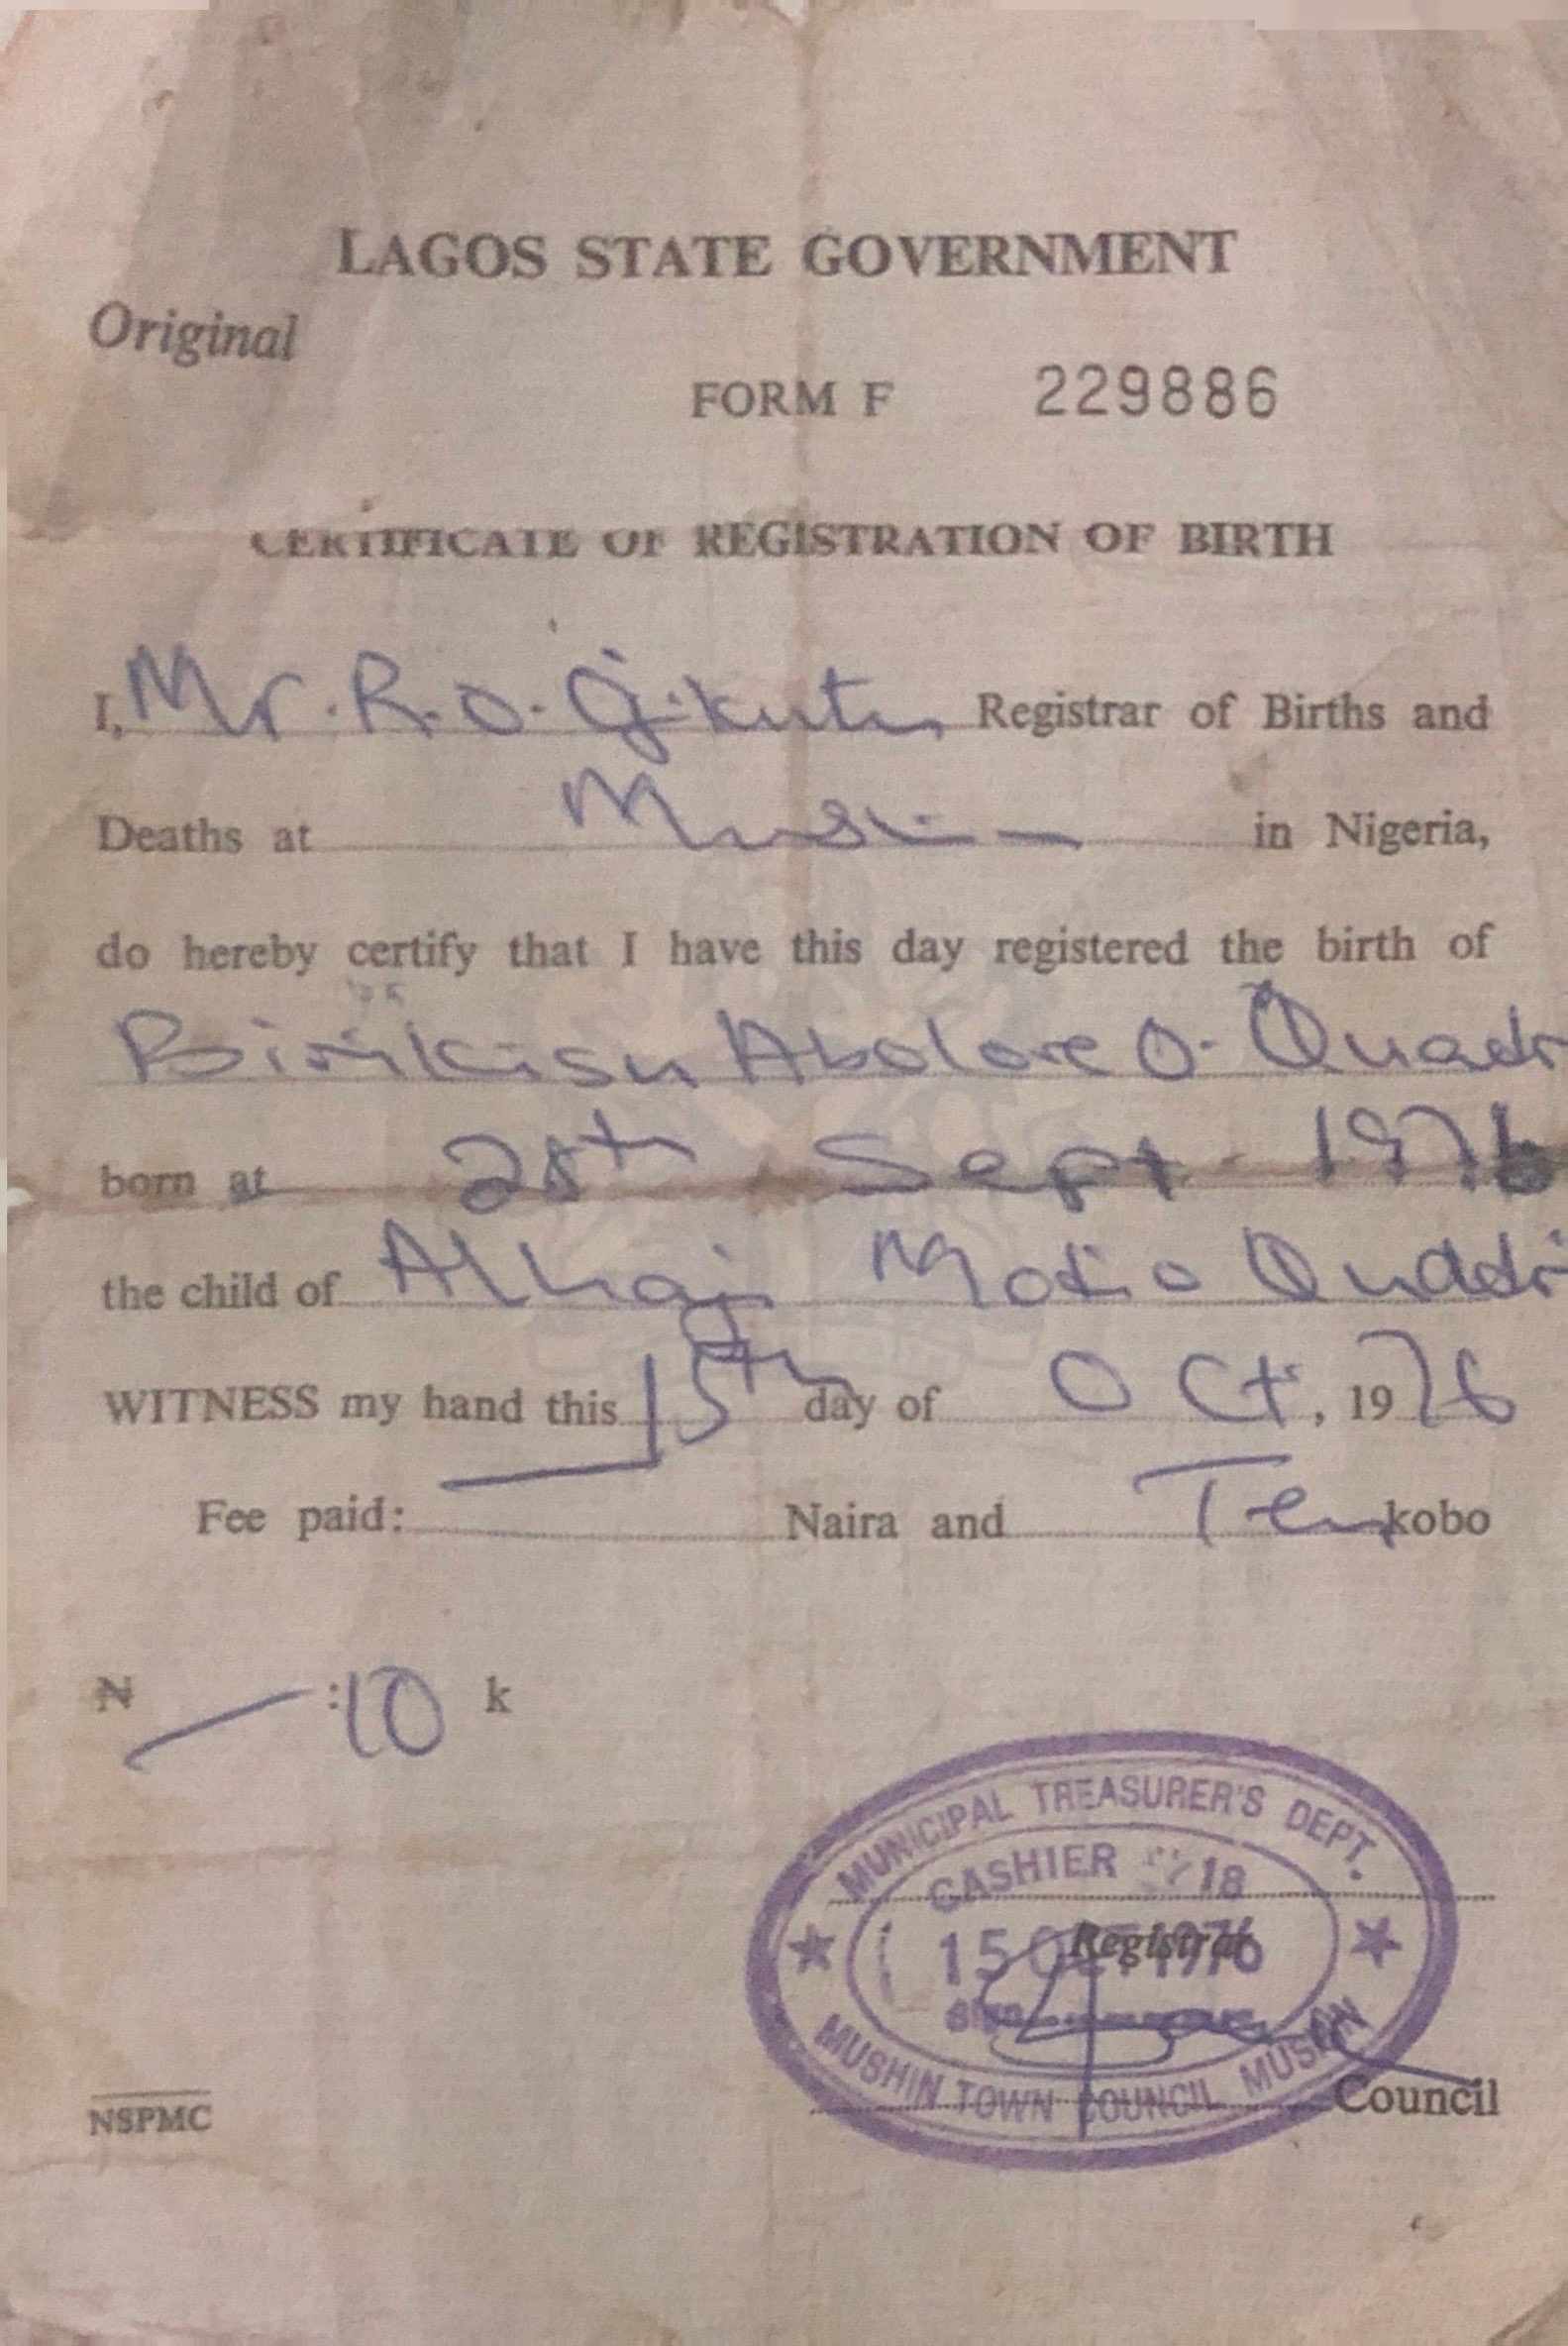 LAGOS STATE GOVERNMENT
Original
FORM F 229886
CERTIFICATE OF REGISTRATION OF BIRTH
I, Mr. R. O. Registrar of Births and
Deaths at Mushin in Nigeria,
do hereby certify that I have this day registered the birth of
Abolore O. Quadri
born at 28th Sept. 1976
the child of Alhaji Quadri
WITNESS my hand this 15th day of Oct, 1976
Fee paid: — Naira and Ten kobo
N — : 10 k
MUNICIPAL TREASURER'S DEPT.
CASHIER 18
15 OCT 1976
Registrar
Sign
MUSHIN TOWN COUNCIL MUSHIN
Council
NSPMC